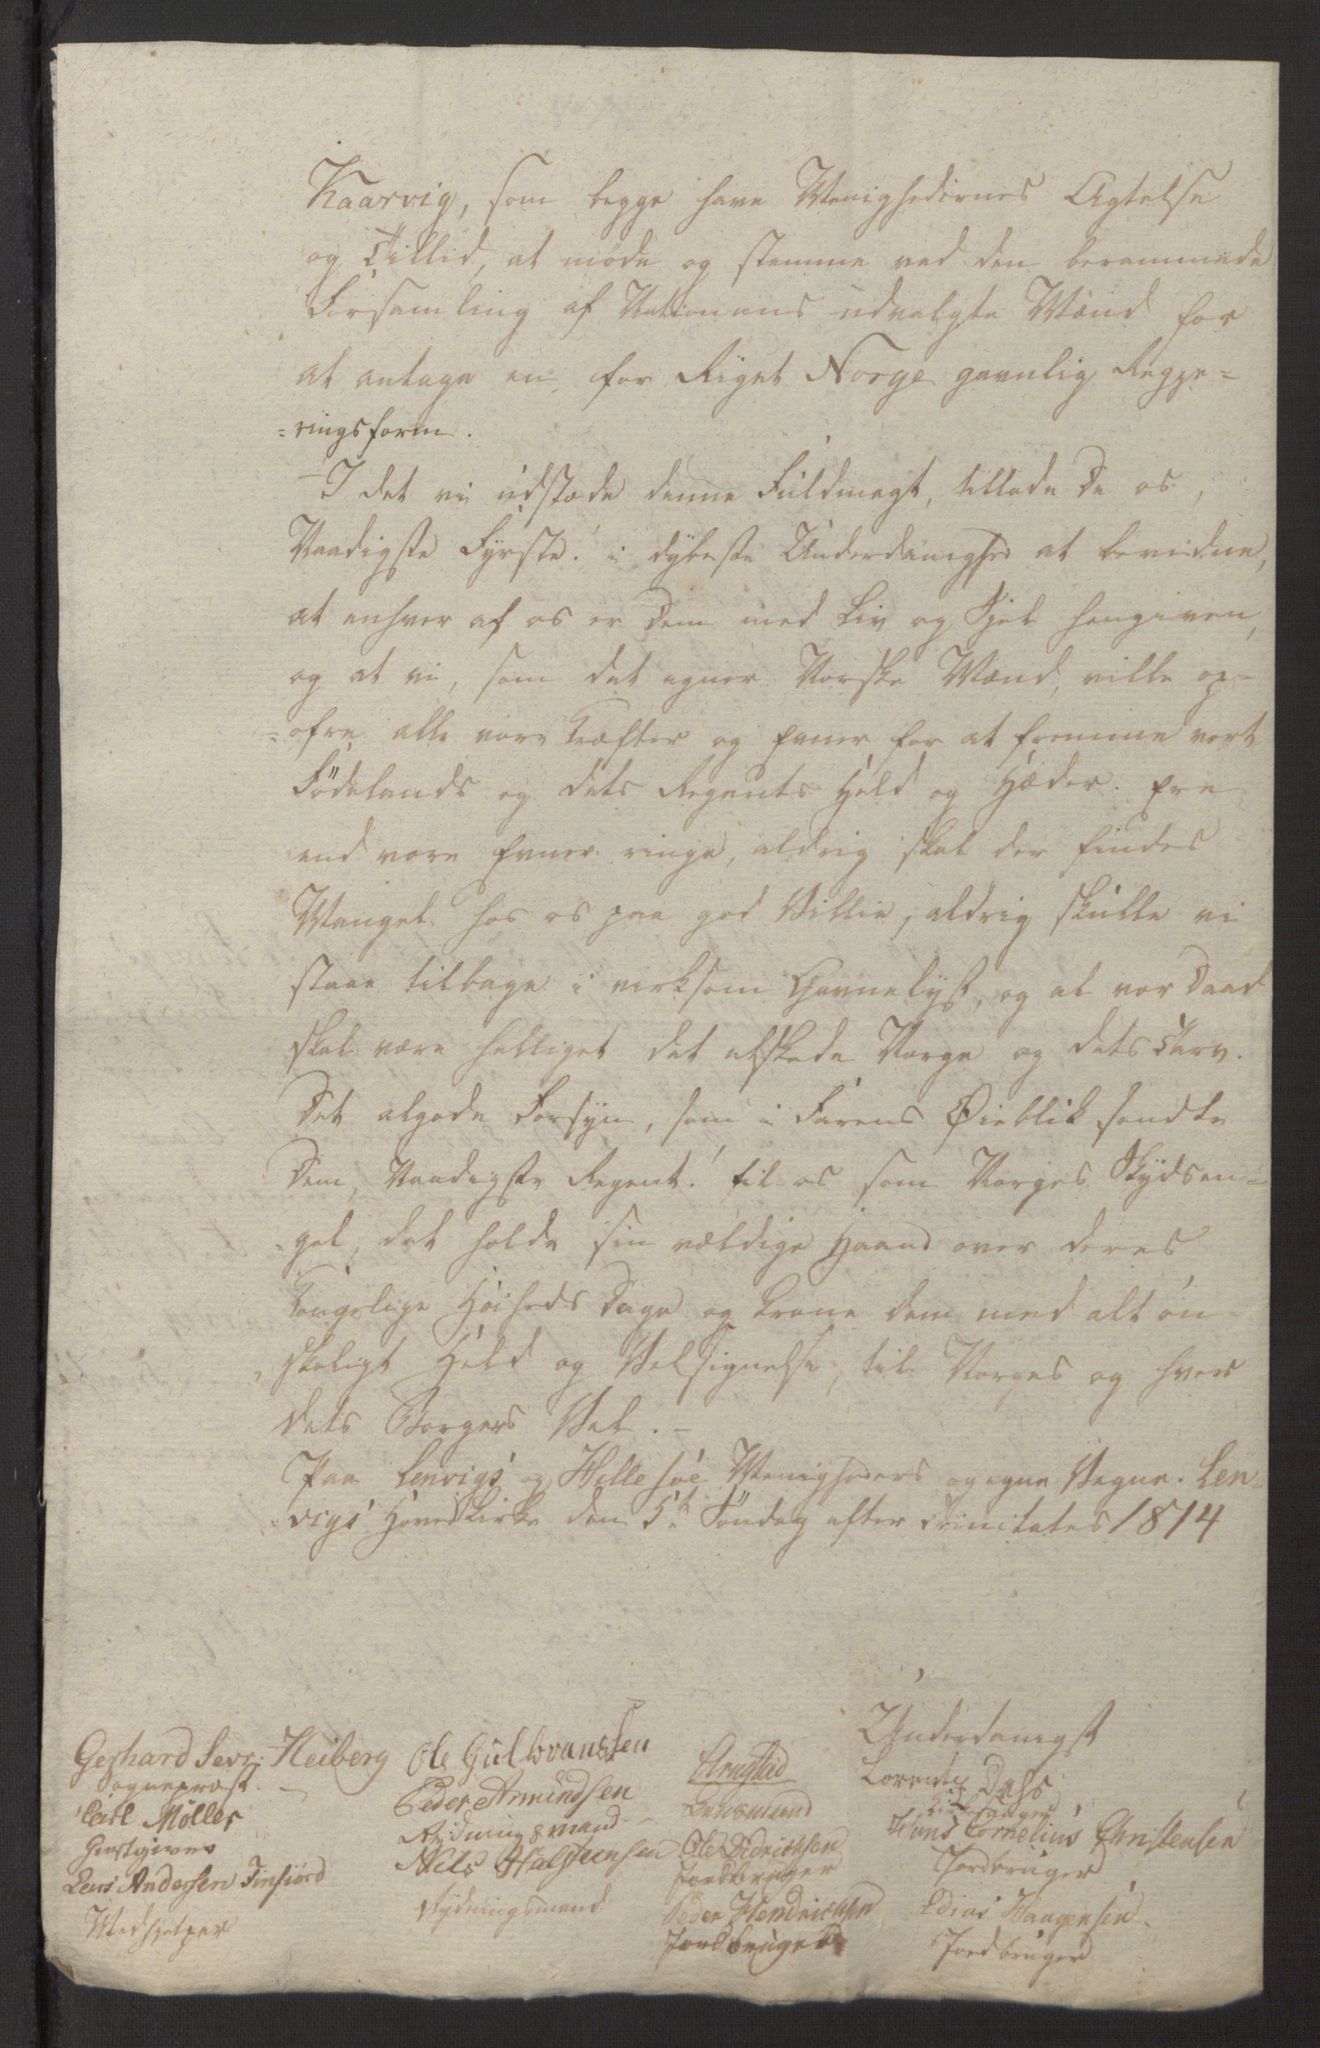 Kaarvig, som begge have Menighedernes Agtelse
og Tillid, at møde og stemme ved den berammede
Forsamling af Nationens udvalgte Mænd for
at antage en, for Riget Norge gavnlig Regje=
=ringsform.
I det vi udstæde denne Fuldmagt, tillade De os,
Naadigste Fyrste! i dybeste Underdanighed at bevidne,
at enhver af os er Dem med Liv og Sjel hengiven,
og at vi, som det egner Norske Mænd, ville op=
=ofre alle vore Kræfter og Evner for at fremme vort
Fødelands og dets Regents Held og Hæder. Ere
end vore Evner ringe, aldrig skal der findes
Mangel hos os paa god Villie, aldrig skulle vi
staae tilbage i virksom Gavnelyst, og al vor Daad
skal være helliget det elskede Norge og dets Tarv.
Det algode Forsyn, som i Farens Øieblik sendte
Dem, Naadigste Regent! til os som Norges Skydsen=
=gel, det holde sin vældige Haand over deres
Kongelige Høiheds Dage og krone dem med alt øn=
=skeligt Held og Velsignelse, til Norges og hver
dets Borgers Vel.
Paa Lenvigs og Hillesøe Menigheders og egne Vegne. Len=
=vigs HovedKirke den 5te Søndag efter Trinitates 1814
Underdanigst
Gerhard Sevr: Heiberg
Sogneprest.
Carl Møller
Giestgiver
Lars Andersen Finfiord
Medhjelper
Ole Gulbranssen
Peder Amundsen
Rydningsmand
Niels Halsteensen
Rydningsmand
Lensmand
Ole Didrichsen
Jordbruger
Peder Hendrichsen
Jordbruger
Lorentz Dahl
Kirkesanger
Hans Cornelius Christensen
Jordbruger
Edias Haagensen
Jordbruger